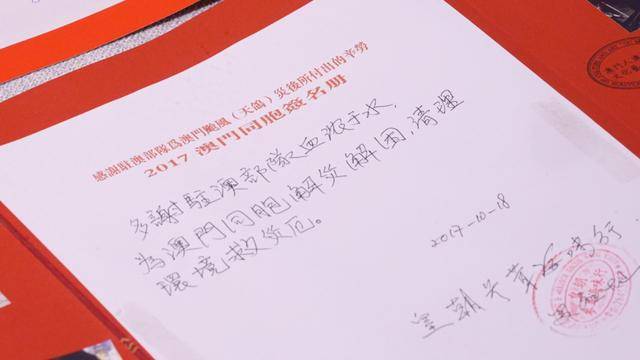 感謝駐澳部隊爲澳門颱風（天鴿）災後所付出的辛勞
2017 澳門同胞簽名册
多謝駐澳部隊血浓于水,
为澳門同胞解災解困,清理
環境救災厄。
2017-10-18